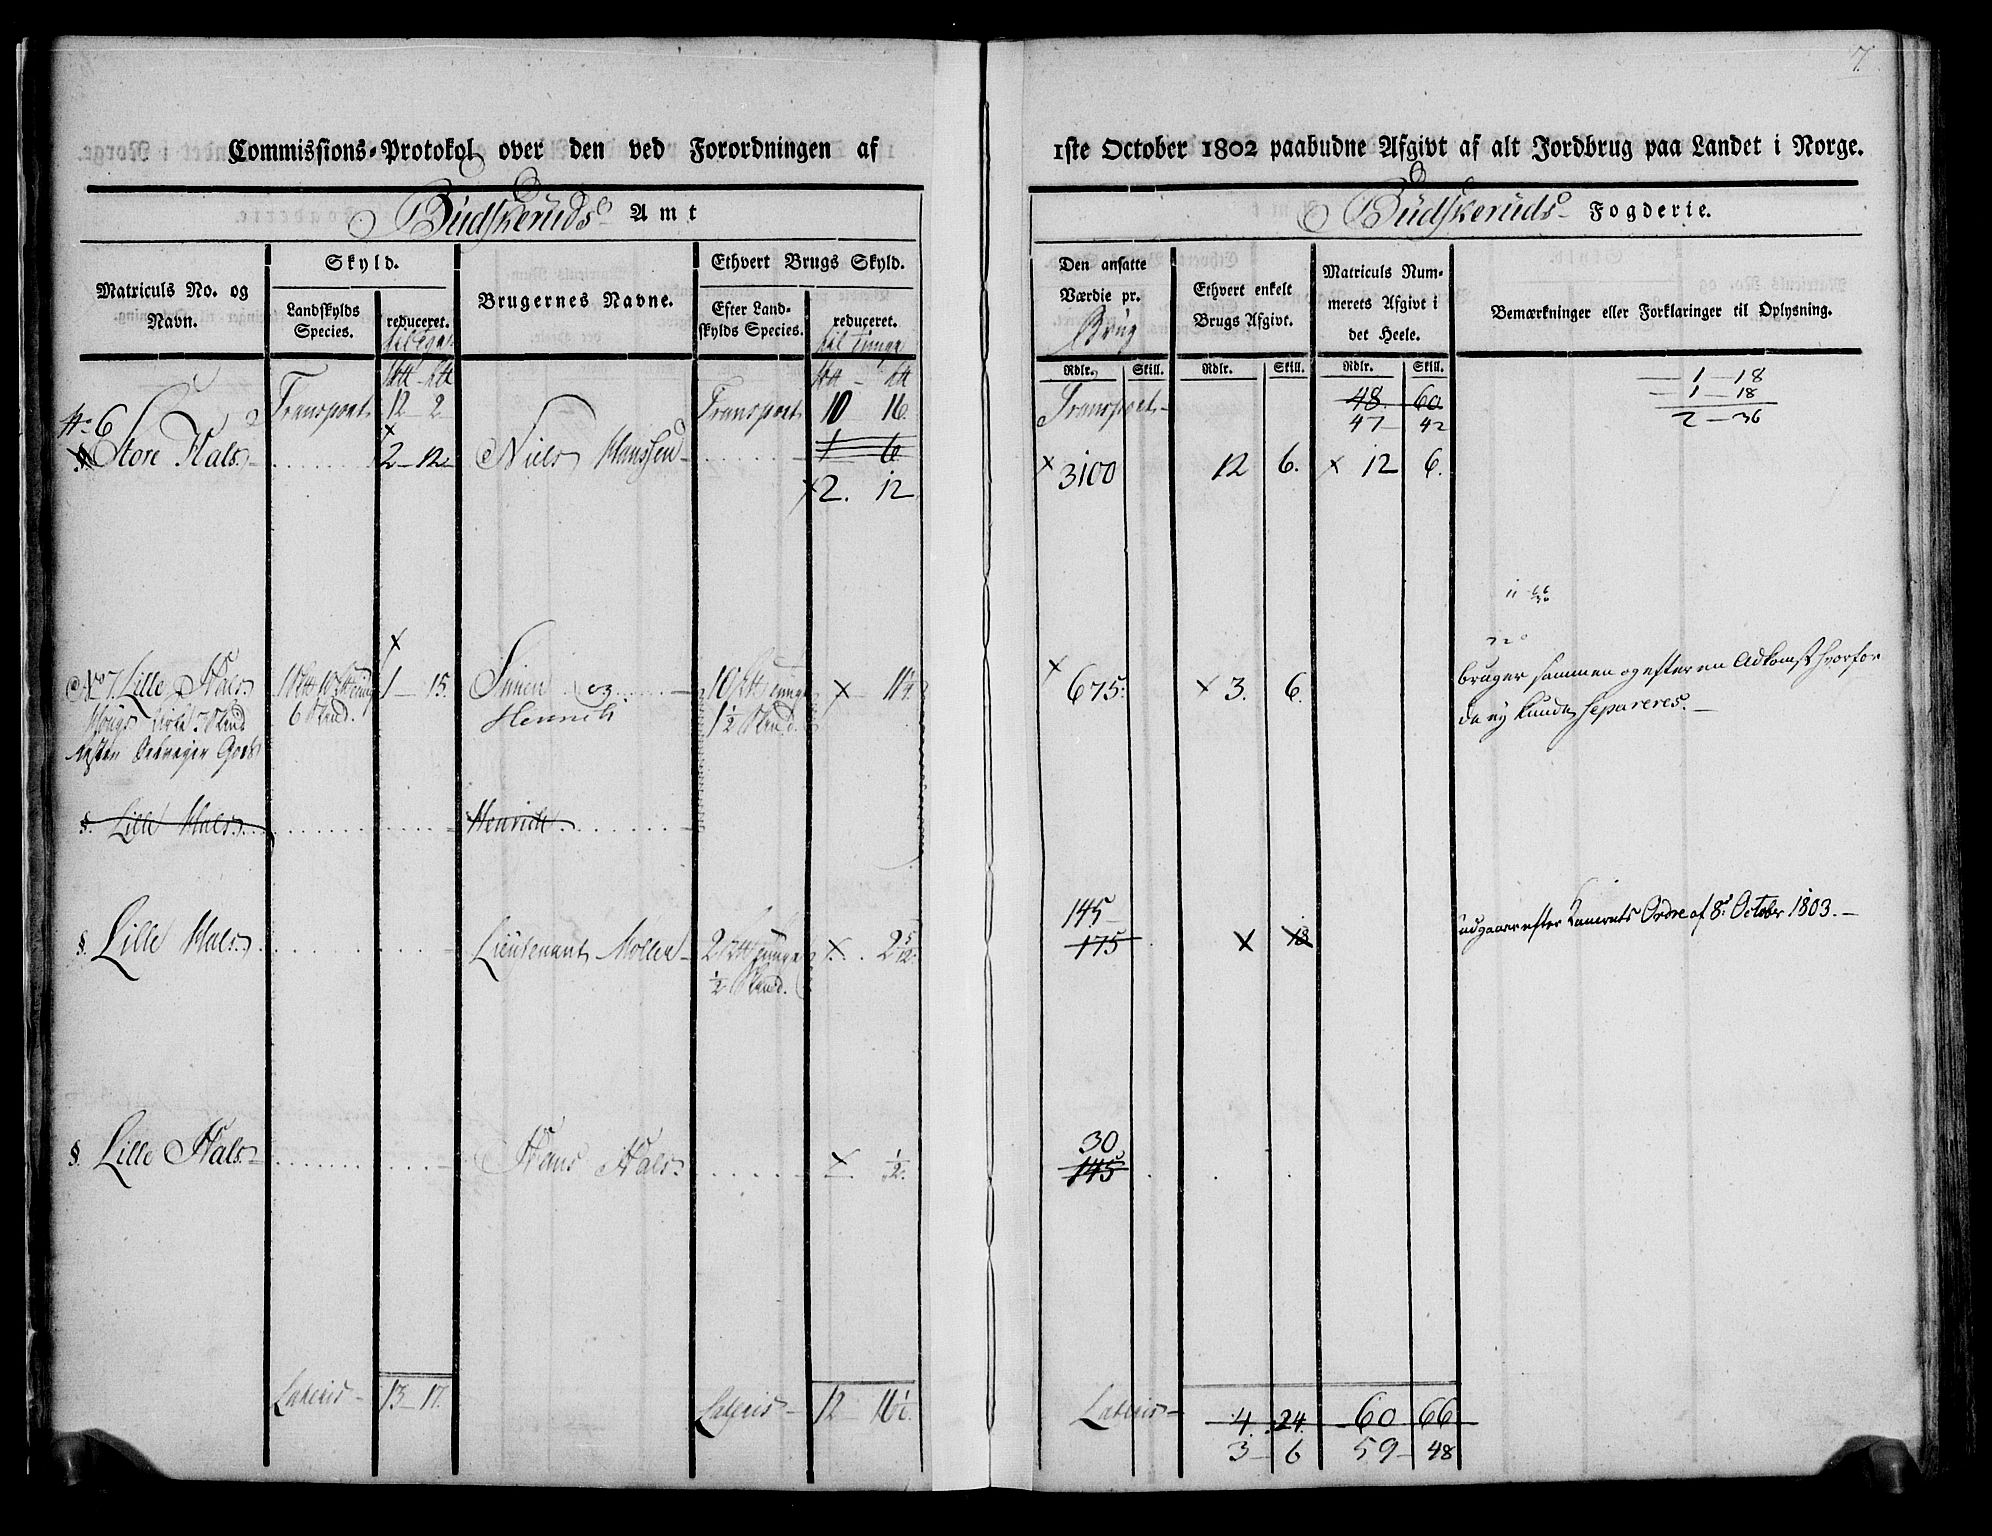 7.
Commissions-Protokol over den ved Forordningen af 1ste October 1802 paabudne Afgivt af alt Jordbrug paa Landet i Norge.
Budskeruds Amt
Budskeruds Fogderie.
Matriculs No. og Navn.
Skyld.
Landskylds Species.
reduceret.
Brugernes Navne.
Ethvert Brugs Skyld.
Efter Landskylds Species.
reduceret.
til Tunge
Den ansatte Værdie pr. Brug
Ethvert enkelt Brugs Afgivt.
Matriculs Nummerets Afgivt i det Heele.
Bemærkninger eller Forklaringer til Oplysning.
Rdlr. Skill. Rdlr. Skill. Rdlr. Skill.
Transport 12 - 2 Transport 10 16 Transport 48 60
47 - 42
1 - 18
1 - 18
2 - 36
No 6
Store Hals 2 - 12 Niels Hanssen 1 6
x 2. 12
x 3100 12 6. x 12 6.
No 7. Lille Hals 1 - 15. Simen og Henrich
6 Skind. 1½ Skind.
x 675. x 3. 6.
bruger sammen og efter en Adkomst hvorfor
de ey kunde separeres. -
§. Lille Hals Henrich
§. Lille Hals Lieutenant Møller 2 5/12
½ Skind.
145
175 x 18
udgaaer efter Kammerets Ordre af 8de October 1803. -
§. Lille Hals Hans Hals x ½.
30
145
Lateris 13 - 17. Lateris 12 Lateris 4. 24. 60 66
3 6 59 - 48